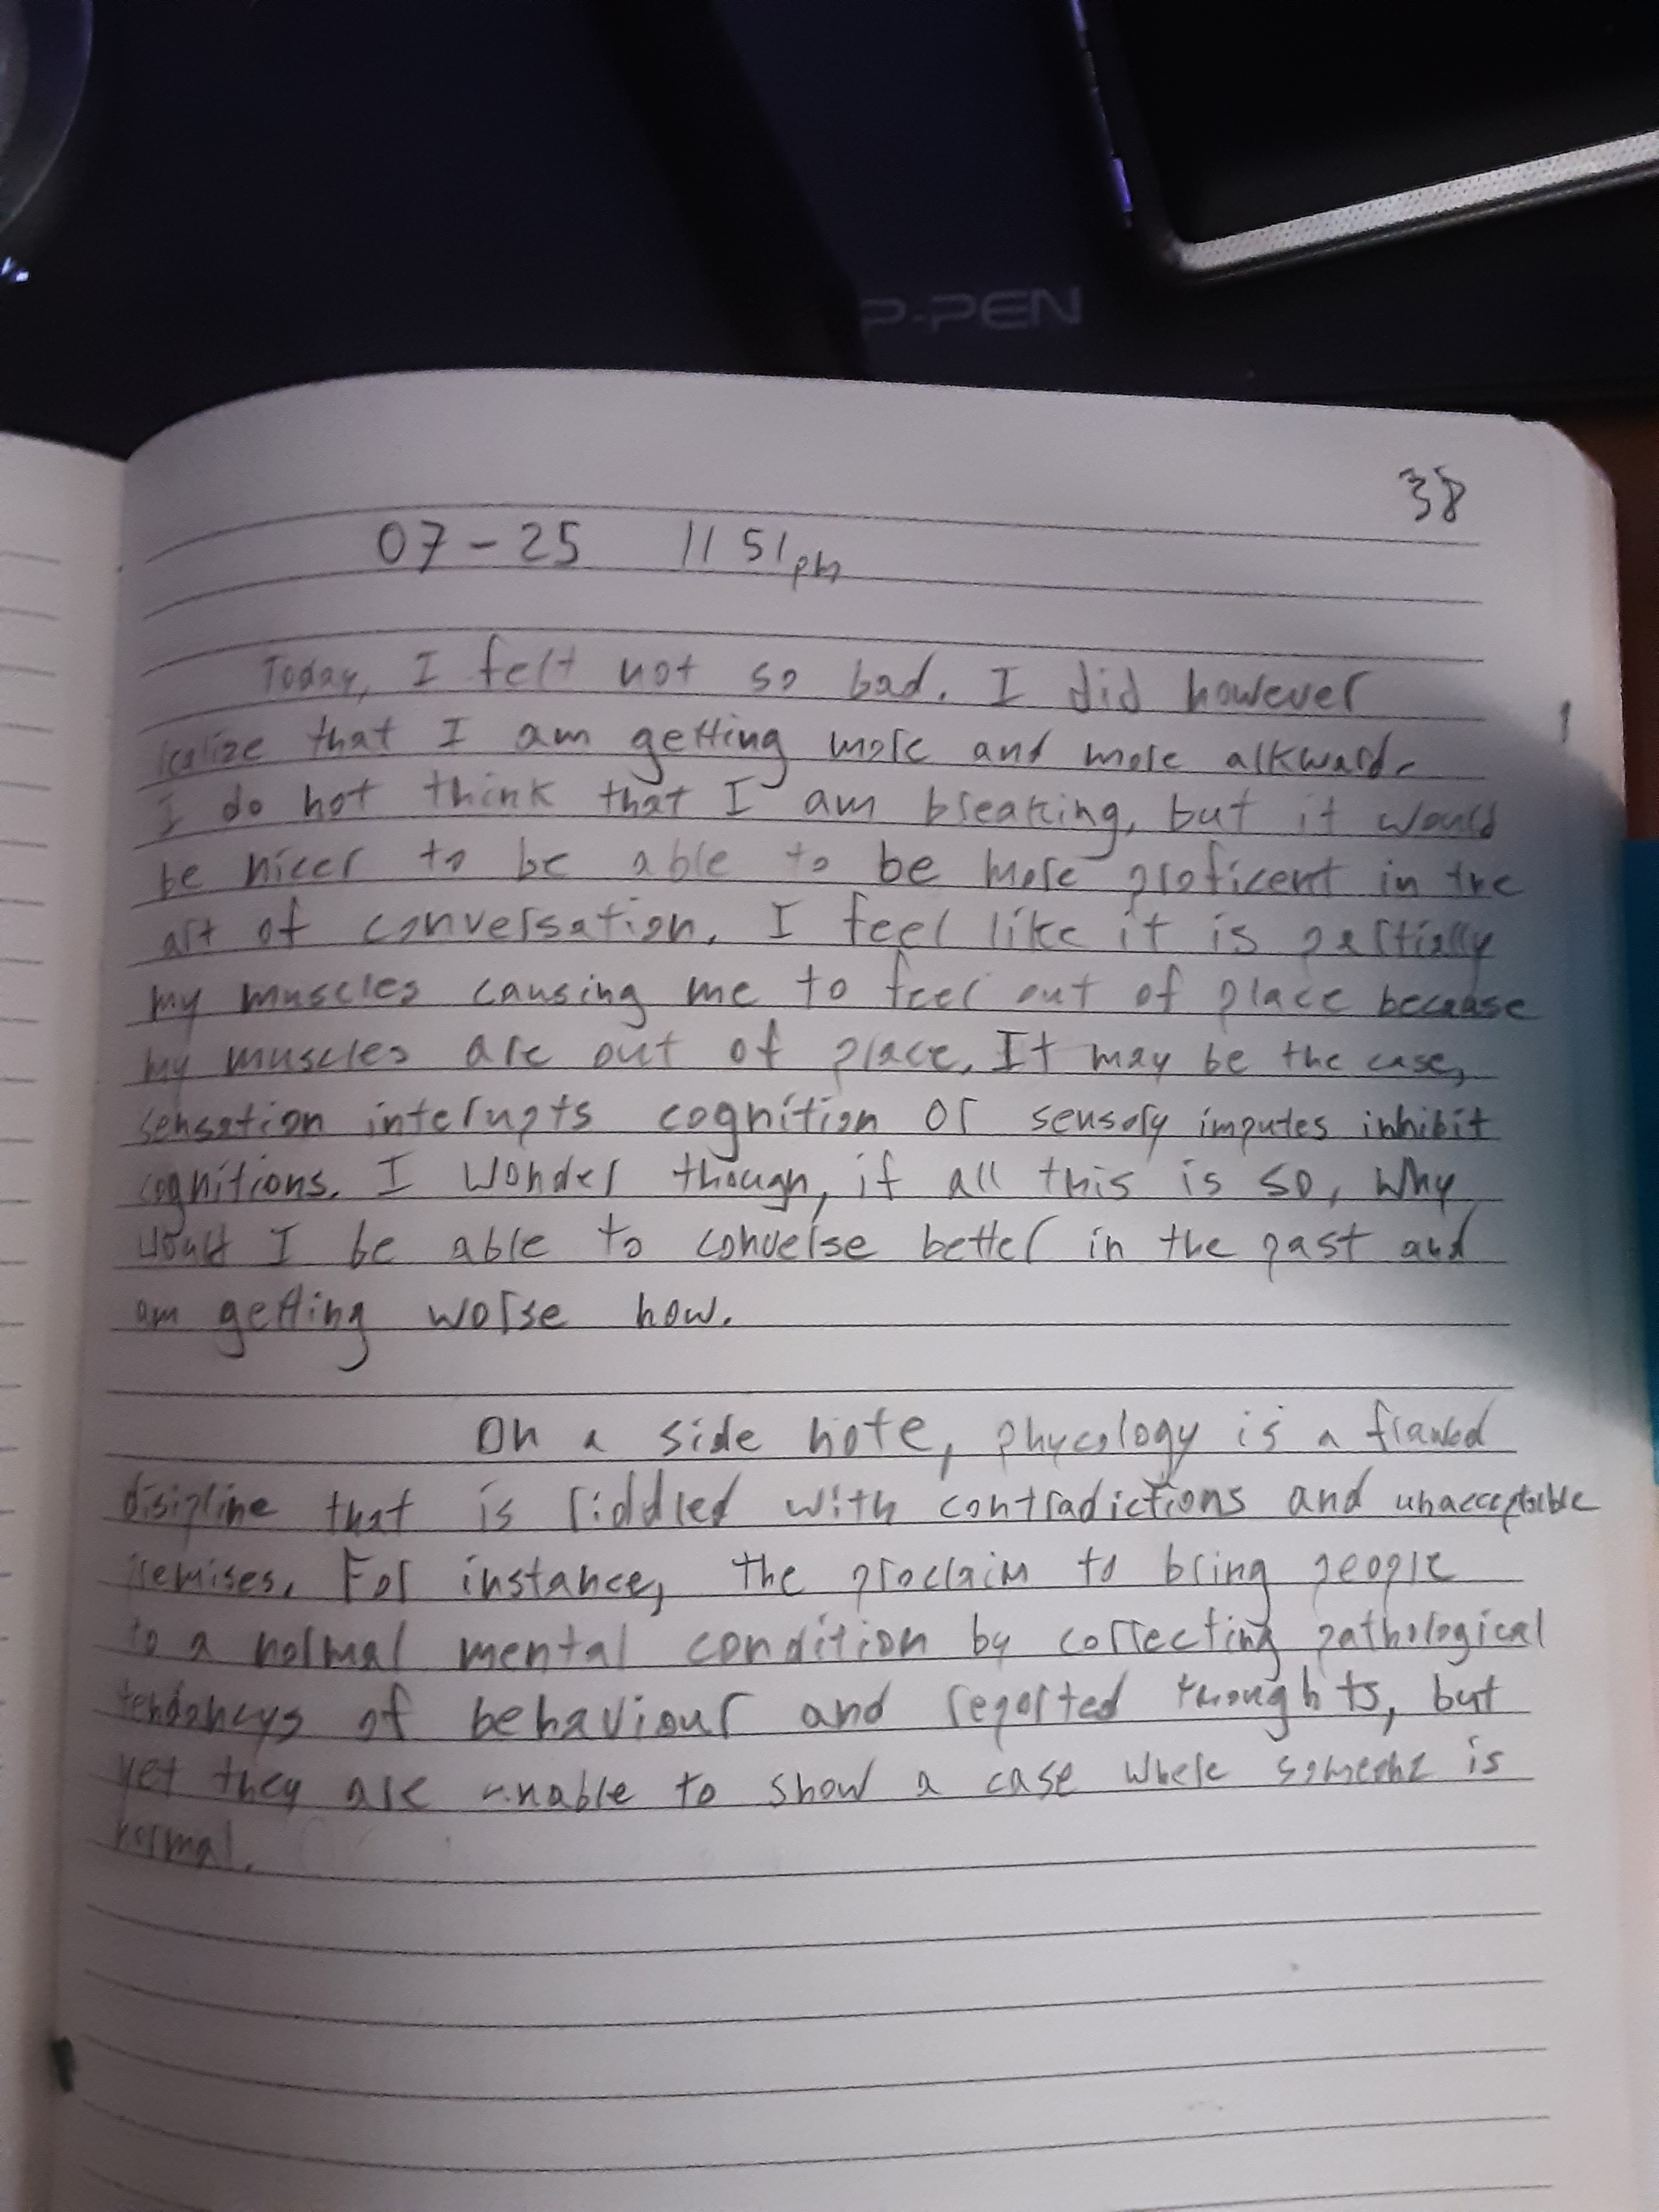 P-PEN
38
07-25 11 51pm
Today, I felt not so bad. I did however
realize that I am getting more and more alkward.
I do not think that I am breaking, but it would
be nicer to be able to be more proficent in the
art of conversation. I feel like it is partially
my muscles causing me to feel out of place because
my muscles are out of place. It may be the case,
sensation interupts cognition or sensory imputes inhibit
cognitions. I wonder though, if all this is so, why
would I be able to converse better in the past and
am getting worse now.
On a side note, phycology is a flawed
disipline that is riddled with contradictions and unacceptable
premises. For instance, the proclaim to bring people
to a normal mental condition by correcting pathological
tendancys of behaviour and reported thoughts, but
yet they are unable to show a case where someone is
normal.